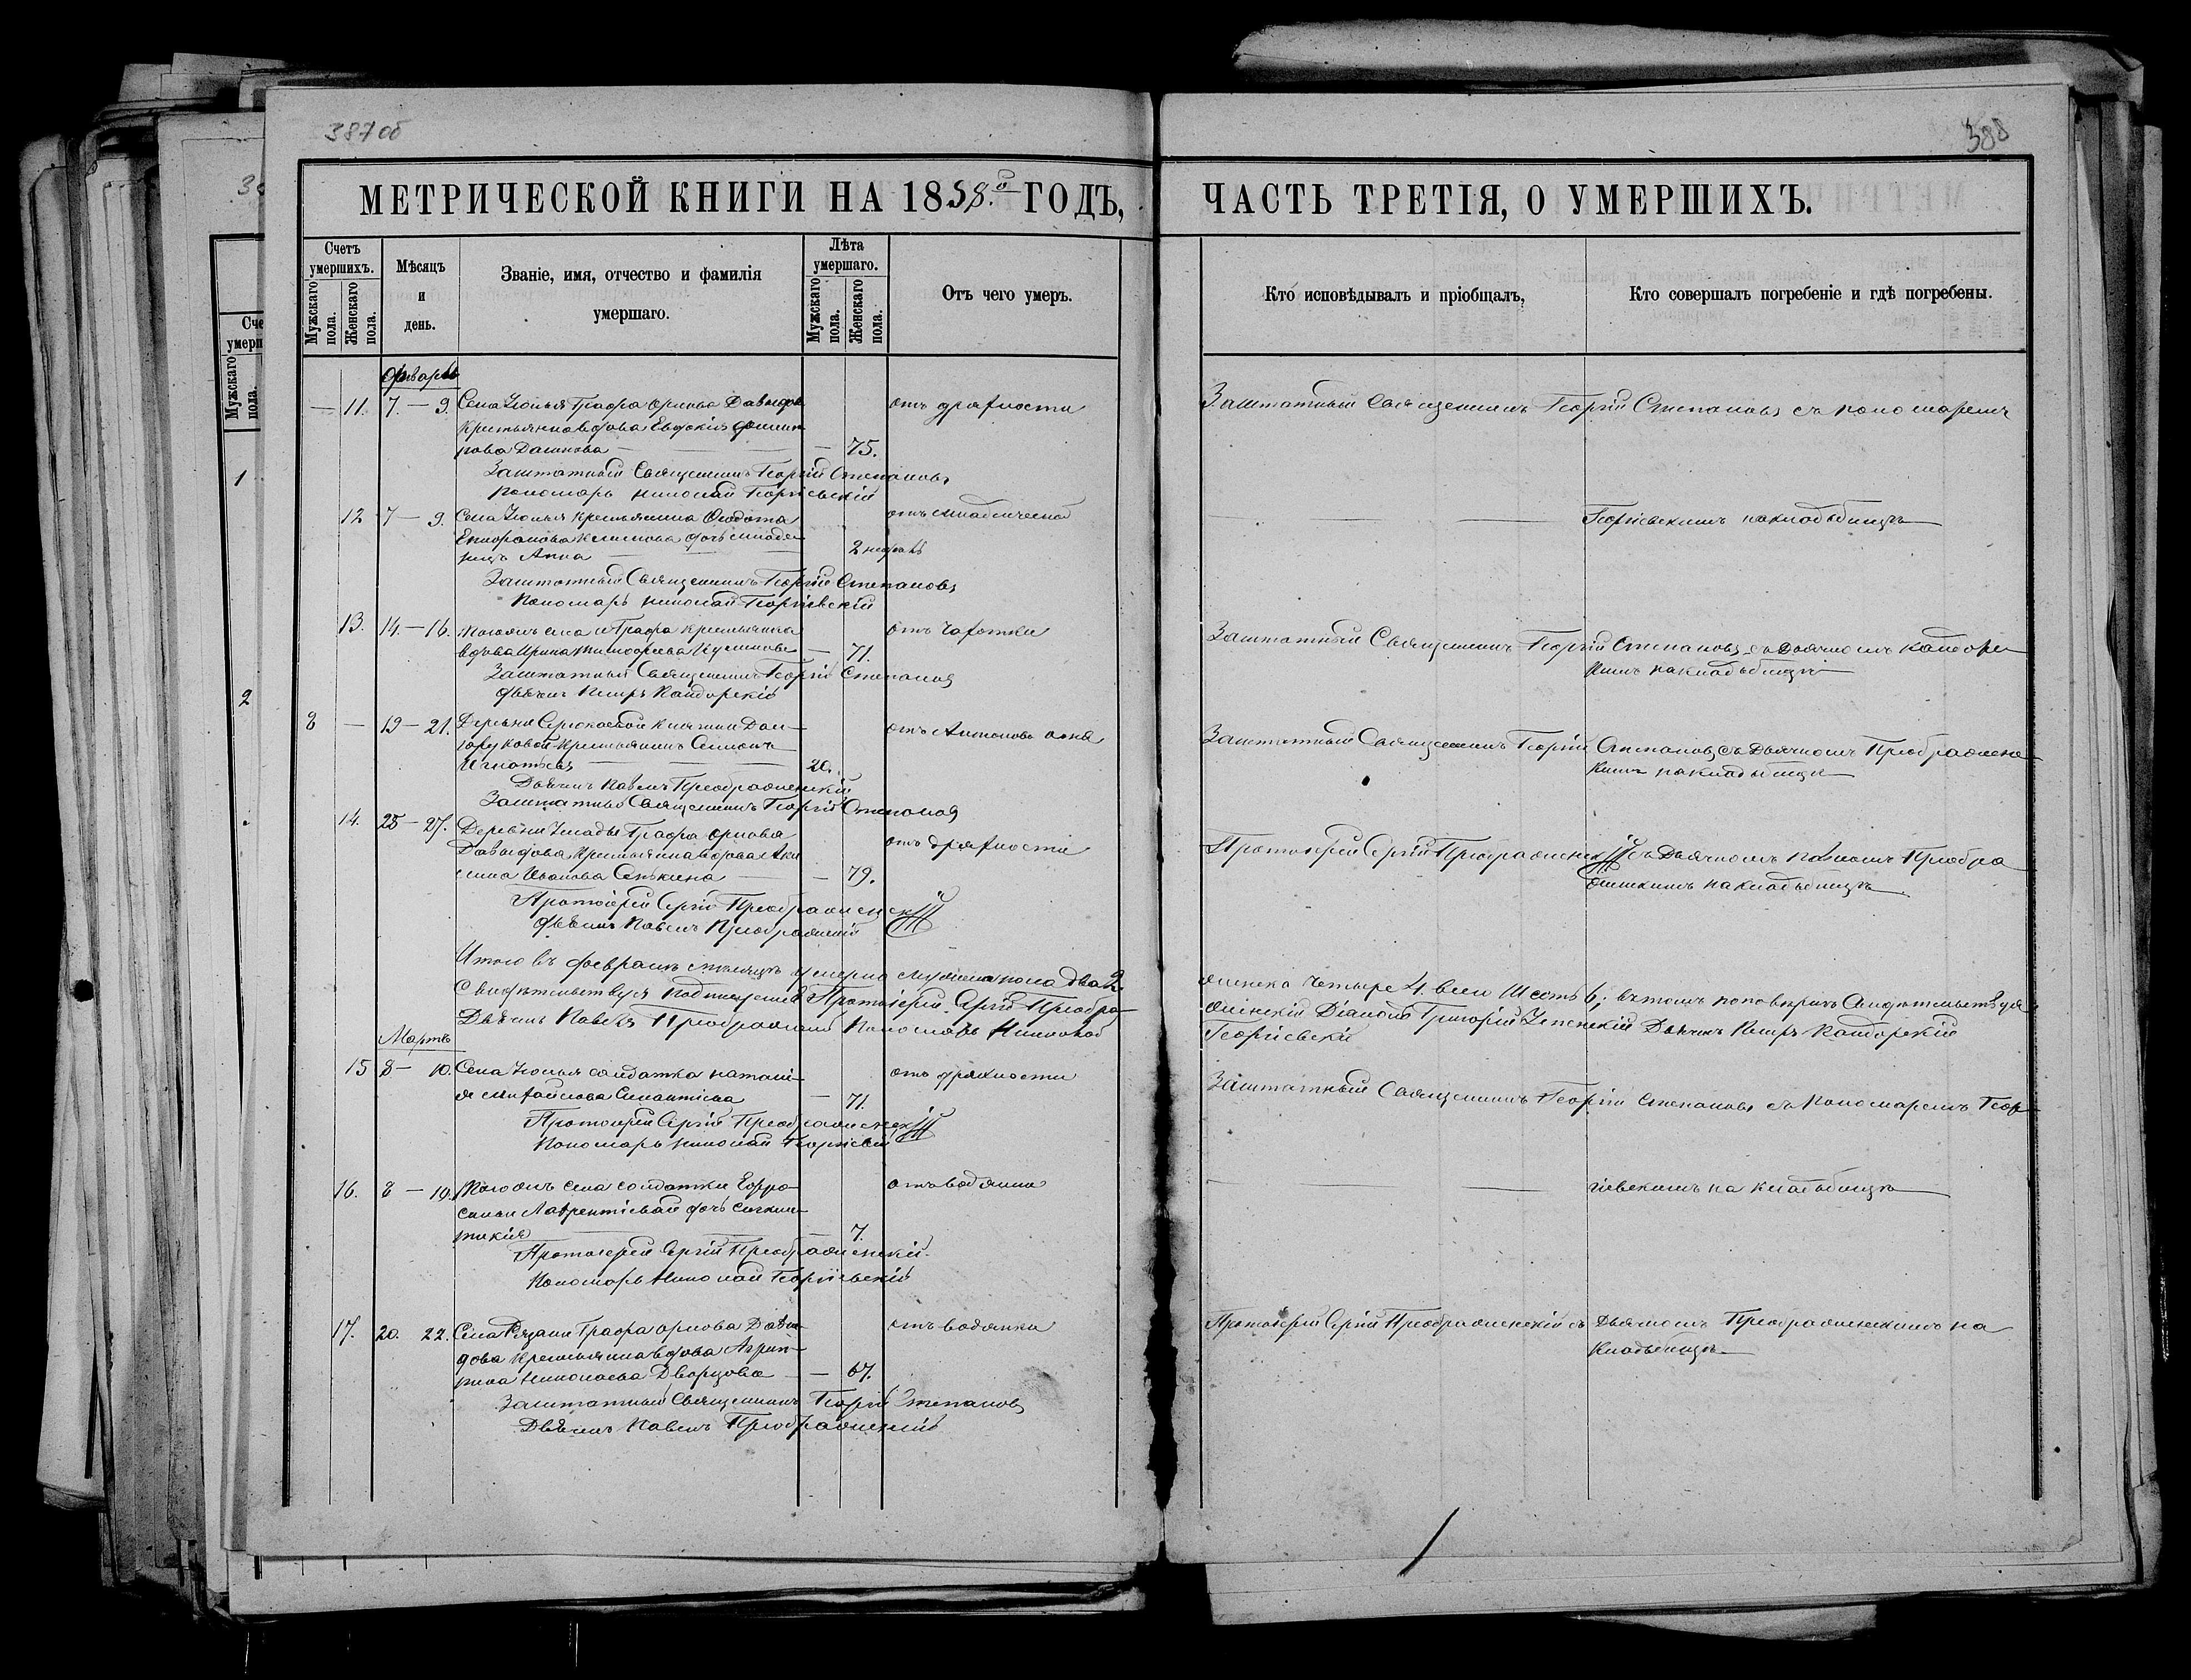 387 об
388
МЕТРИЧЕСКОЙ КНИГИ НА 1858й ГОДЪ, ЧАСТЬ ТРЕТІЯ, О УМЕРШИХЪ.
Счетъ умершихъ.
Мужскаго пола.
Женскаго пола.
Мѣсяцъ и день.
Званіе, имя, отчество и фамилія умершаго.
Лѣта умершаго.
Мужскаго пола.
Женскаго пола.
Отъ чего умеръ.
Кто исповѣдывалъ и пріобщалъ.
Кто совершалъ погребеніе и гдѣ погребены.
— 11. 7. — 9. Села Графа Орлова Давыдова отъ дряхлости Заштатный Священникъ Георгій Степановъ съ пономаремъ
крестьянка вдова Евдокія
— 75.
Заштатный Священникъ Георгій Степановъ
Пономарь Николай Георгіевскій
12 7 — 9. Села крестьянина отъ младенческой — Георгіевскимъ на кладбищѣ
дочь младе-
нецъ Анна — 2 недѣль
Заштатный Священникъ Георгій Степановъ
Пономарь Николай Георгіевскій
13. 14. — 16. Того же села и Графа крестьянка отъ чахотки Заштатный Священникъ Георгій Степановъ съ Дьячкомъ Кандорс-
вдова Ирина Тимофеева — 71. кимъ на кладбищѣ
Заштатный Священникъ Георгій Степановъ
Дьячекъ Петръ Кандорскій
8 — 19 — 21. Деревни Княгини Дол- отъ Антонова огня Заштатный Священникъ Георгій Степановъ съ Дьячкомъ Преображенс-
горуковой крестьянинъ Симеонъ кимъ на кладбищѣ
Игнатьевъ 20.
Дьячекъ Павелъ Преображенскій
Заштатный Священникъ Георгій Степановъ
14. 25 — 27. Деревни Графа Орлова отъ дряхлости Протоіерей Сергій Преображенскій съ Дьячкомъ Павломъ Преобра
Давыдова крестьянка вдова Аку
лина Иванова — 79. женскимъ на кладбищѣ
Протоіерей Сергій Преображенскій
Дьячекъ Павелъ Преображенскій
Итого въ февралѣ мѣсяцѣ умерло мужеска пола два 2. женска четыре 4. всего шесть 6; въ томъ по повѣркѣ свидѣтельствуя
Свидѣтельствуя подписуемся Протоіерей Сергій Преобра- женскій Діаконъ Григорій Дьячекъ Петръ Кандорскій
Дьячекъ Павелъ Преображенскій Пономарь Николай Георгіевскій
Мартъ
15 8 — 10. Села солдатка Наталі- отъ дряхлости Заштатный Священникъ Георгій Степановъ съ Пономаремъ Геор-
я Михайлова — 71.
Протоіерей Сергій Преображенскій
Пономарь Николай Георгіевскій
16. 8 — 10. Того же села солдатки Евфро- отъ водянки — гіевскимъ на кладбищѣ
синіи Лаврентіевой дочь
— 7.
Протоіерей Сергій Преображенскій
Пономарь Николай Георгіевскій
17. 20. 22. Села Рязани Графа Орлова Давы- отъ водянки Протоіерей Сергій Преображенскій съ Дьячкомъ Преображенскимъ на
дова крестьянка вдова Агрип- кладбищѣ
пина Николаева Дворцова — 67.
Заштатный Священникъ Георгій Степановъ
Дьячекъ Павелъ Преображенскій